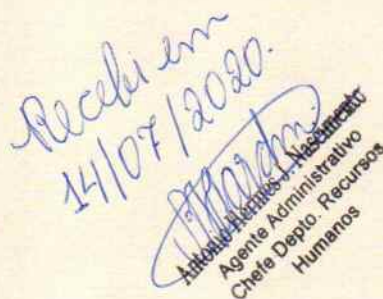 Recebi em
14/07/2020.
Nascimento
Agente Administrativo
Chefe Depto. Recursos
Humanos